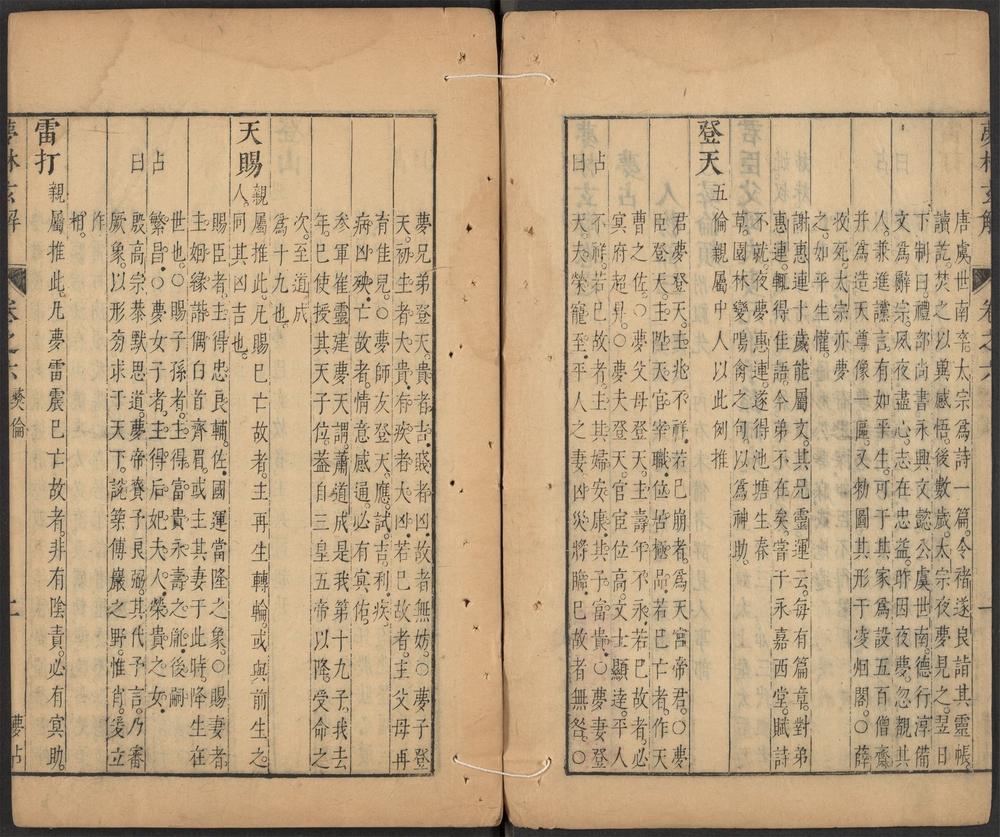 夢林玄解 卷之六 一
唐虞世南卒。太宗爲詩一篇。令褚遂良請其靈帳。
讀訖。焚之。以異感悟。後數歲。太宗夜夢見之。翌日
下制曰。禮部尚書永興文懿公虞世南。德行淳備。
文爲辭宗。夙夜盡心。志在忠益。昨因夜夢。忽覩其
人。兼進讜言。有如平生。可于其家爲設五百僧齋。
并爲造天尊像一區。又勑圖其形于凌烟閣。○薛
收死。太宗亦夢
之。如平生懽。
謝惠連十歲能屬文。其兄靈運云。每有篇章。對弟
惠連。輒得佳語。今弟不在矣。當于永嘉西堂。賦詩
不就。夜夢惠連。遂得池塘生春
草。園林變鳴禽之句。以爲神助。
登天 五倫親屬中人以此例推
君夢登天。主兆不祥。若已崩者。爲天宮帝君。○夢
臣登天。主陞天官宰職。位苦極品。若已亡者。作天
曹之佐。○夢父母登天。主壽年不永。若已故者。必
冥府超昇。○夢夫登天。官宦位高。文士顯達。平人
占 不祥。若已故者。主其婦安康。其子富貴。○夢妻登
曰 天。夫榮寵至。平人之妻凶災將臨。已故者無咎。○
夢兄弟登天。貴者吉。賤者凶。故者無妨。○夢子登
天。初生者大貴。有疾者大凶。若已故者。主父母再
育佳兒。○夢師友登天。應試。吉利。疾
病凶殃。亡故者。情意感通。必有冥佑。
參軍崔靈建夢天謂蕭道成是我第十九子。我去
年。已使授其天子位。蓋自三皇五帝以降。受命之
次。至道成
爲十九也。
天賜 親屬推此。凡賜已亡故者。主再生轉輪。或與前生之
人。同其凶吉也。
賜臣者。主得忠良輔佐。國運當隆之象。○賜妻者。
主姻緣諧偶。白首齊眉。或主其妻于此時。降生在
世也。○賜子孫者。主得富貴永壽之胤。後嗣
占 繁昌。○夢女子者。主得后妃夫人。榮貴之女。
曰 殷高宗恭默思道。夢帝賚予良弼。其代予言。乃審
厥象。以形旁求于天下。說築傅巖之野。惟肖。爰立
作
相。
雷打 親屬推此。凡夢雷震已亡故者。非有陰責。必有冥助。
夢林玄解 卷之六 彝倫 二 夢占